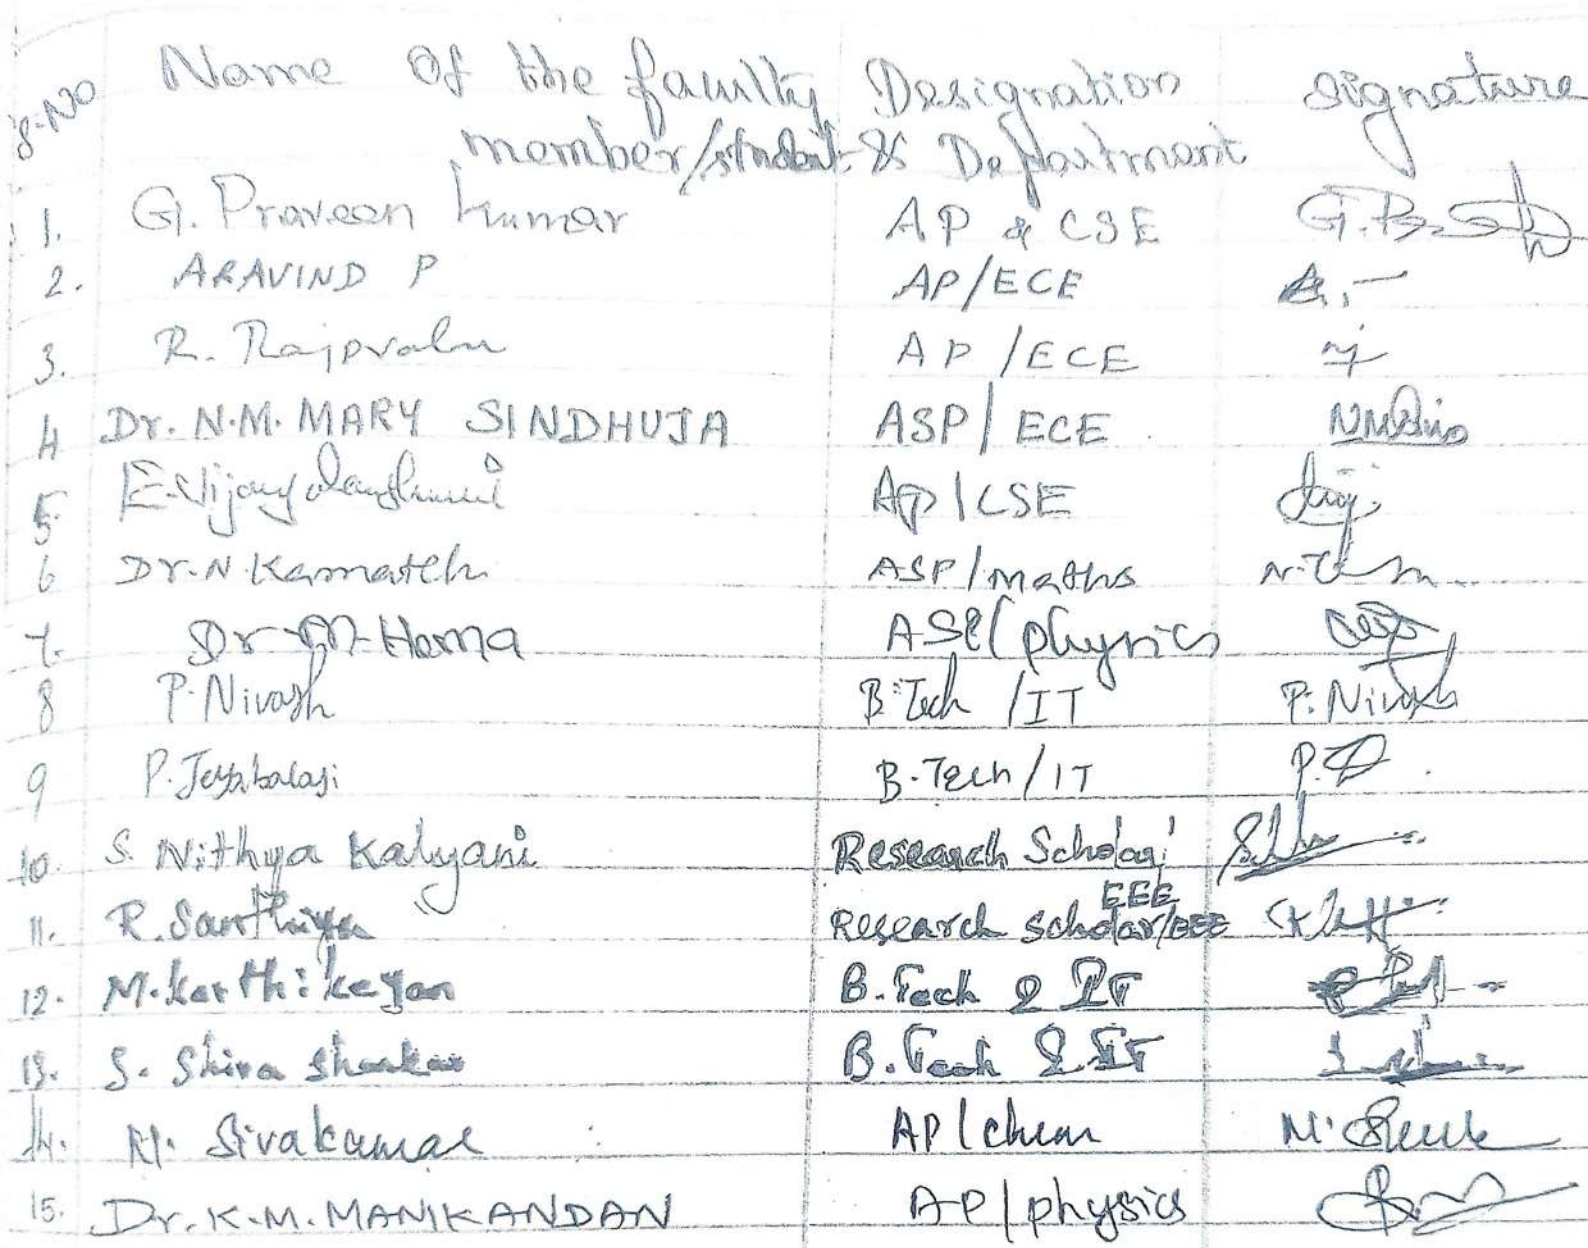 S.No Name Of the faculty Designation Signature
member/student & Department
1. G. Praveen Kumar AP & CSE
2. ARAVIND P AP/ECE
3. R. Rajprabu AP/ECE
4 Dr. N.M. MARY SINDHUJA ASP/ECE
5. E. Vijayalakshmi AP/CSE
6 Dr. N. ASP/maths
7. Dr M. Hema ASP/physics
8 P. Nivash B.Tech/IT P. Nivash
9 P. Jeyabalaji B.Tech/IT
10. S. Nithya Kalyani Research Scholar
EEE
11. R. Santhiya Research Scholar/EEE
12. M. Karthikeyan B.Tech & IT
13. S. Shiva Shankar B.Tech & IT
14. M. Sivakumar AP/chem
15. Dr. K.M. MANIKANDAN AP/physics